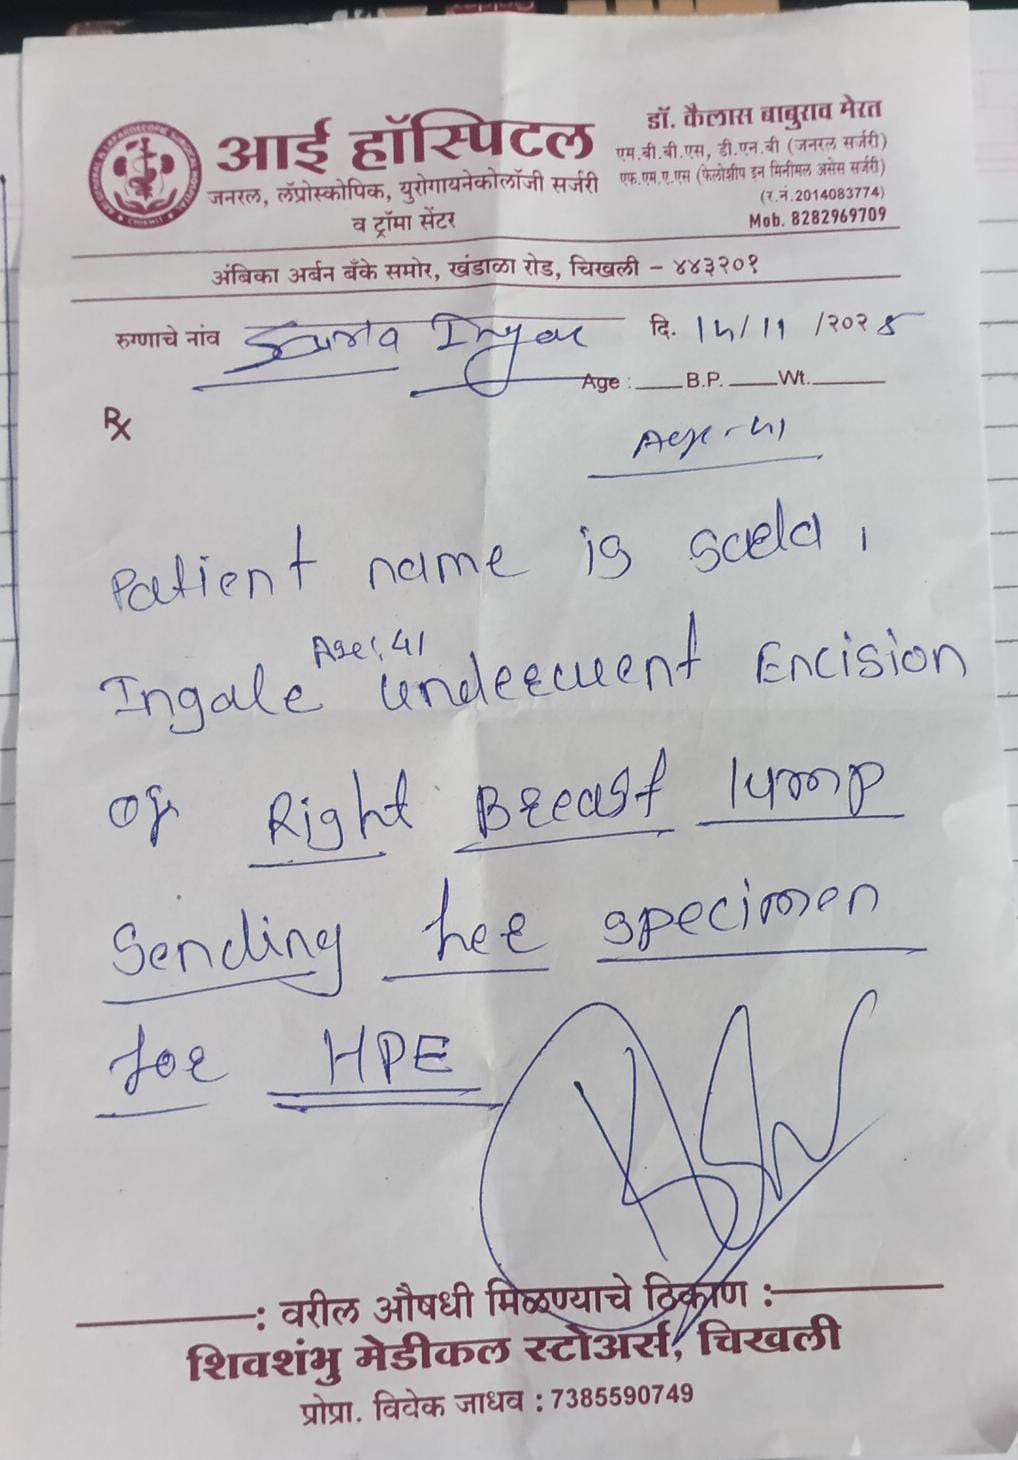 आई हॉस्पिटल
जनरल, लॅप्रोस्कोपिक, युरोगायनेकोलॉजी सर्जरी
व ट्रॉमा सेंटर
डॉ. कैलास बाबुराव मेरत
एम.बी.बी.एस, डी.एन.बी (जनरल सर्जरी)
एफ.एम.ए.एस (फेलोशीप इन मिनीमल अॅसेस सर्जरी)
(र.नं.2014083774)
Mob. 8282969709
अंबिका अर्बन बँके समोर, खंडाळा रोड, चिखली - ४४३२०१
रुग्णाचे नांव दि. /11 /२०२
Age : B.P. Wt.
℞
Age - 41
Patient name is
Age: 41
Ingale underwent Encision
of Right Breast lump
Sending her specimen
for HPE
: वरील औषधी मिळण्याचे ठिकाण :
शिवशंभु मेडीकल स्टोअर्स, चिखली
प्रोप्रा. विवेक जाधव : 7385590749